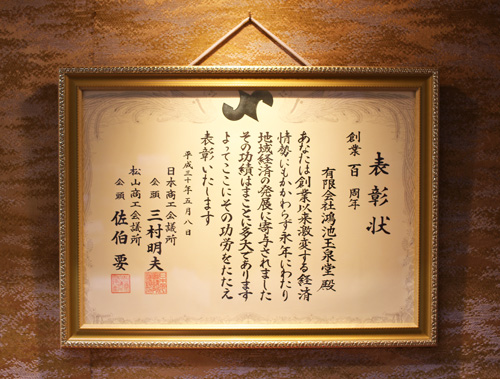 表彰状
創業 百 周年
有限会社鴻池玉泉堂 殿
あなたは創業以来激変する経済
情勢にもかかわらず永年にわたり
地域経済の発展に寄与されました
その功績はまことに多大であります
よってここにその功労をたたえ
表彰いたします
平成三十年五月八日
日本商工会議所
会頭 三村明夫
松山商工会議所
会頭 佐伯 要